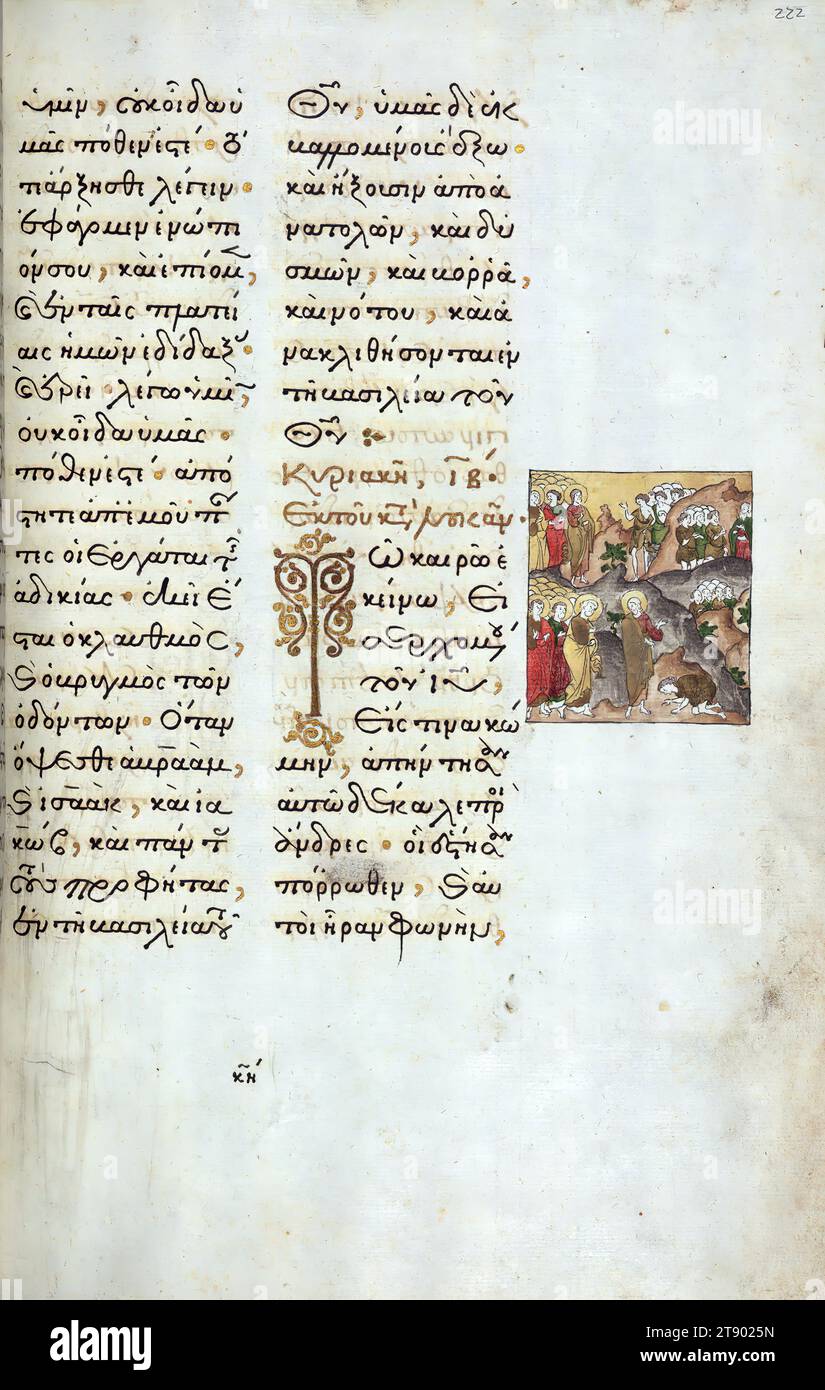 222
ὑμῖν, οὐκ οἶδα ὑ
μᾶς πόθεν ἐστέ· τότ
ἄρξησθε λέγειν·
ἐφάγομεν ἐνώπι
όν σου, καὶ ἐπίομ,
καὶ ἐν ταῖς πλατεί
αις ἡμῶν ἐδίδαξ·
καὶ ἐρεῖ· λέγω ὑμῖ,
οὐκ οἶδα ὑμᾶς·
πόθεν ἐστέ· ἀπό
στητε ἀπ' ἐμοῦ π
τες οἱ ἐργάται τ
ἀδικίας· ἐκεῖ ἔ
σται ὁ κλαυθμὸς,
καὶ ὁ βρυγμὸς τῶν
ὀδόντων· ὅταν
ὄψεσθε ἀβραὰμ,
καὶ ἰσαὰκ, καὶ ἰα
κὼβ, καὶ πάντ
τοὺς προφήτας,
ἐν τῇ βασιλείᾳ τοῦ
Θῦ, ὑμᾶς δὲ ἐκ
βαλλομένους ἔξω·
καὶ ἥξουσιν ἀπὸ ἀ
νατολῶν, καὶ δυ
σμῶν, καὶ βορρᾶ,
καὶ νότου, καὶ ἀ
νακλιθήσονται ἐν
τῇ βασιλείᾳ τοῦ
Θῦ
Κυριακῇ, ιβ·
Ἐκ τοῦ κτ λουκᾶν·
Τῶ καιρῶ ἐ
κείνω, εἰ
σερχομ
τοῦ ιῦ,
εἴς τινα κώ
μην, ἀπήντησαν
αὐτῶ δέκα λεπροὶ
ἄνδρες· οἳ ἔστησαν
πόρρωθεν, καὶ αὐ
τοὶ ἦραν φωνὴν,
κη
alamy
alamy
a
a
a
alamy
Image ID: 2T9025N
www.alamy.com